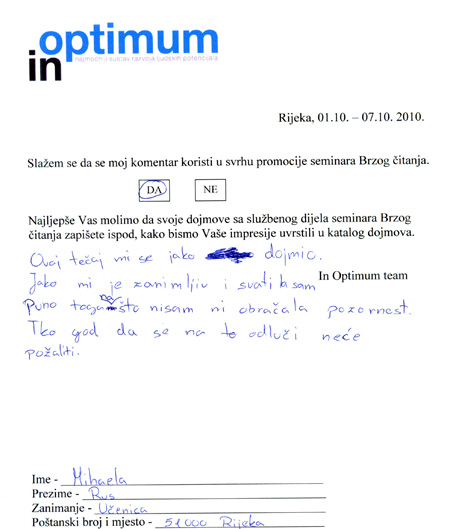 optimum
in
najmoćniji sustav razvoja ljudskih potencijala
Rijeka, 01.10. – 07.10. 2010.
Slažem se da se moj komentar koristi u svrhu promocije seminara Brzog čitanja.
DA NE
Najljepše Vas molimo da svoje dojmove sa službenog dijela seminara Brzog
čitanja zapišete ispod, kako bismo Vaše impresije uvrstili u katalog dojmova.
Ovaj tečaj mi se jako dojmio.
Jako mi je zanimljiv i svatila sam
In Optimum team
Puno toga na što nisam ni obračala pozornost.
Tko god da se na to odluči neće
požaliti.
Ime - Mihaela
Prezime - Rus
Zanimanje - Učenica
Poštanski broj i mjesto - 51000 Rijeka